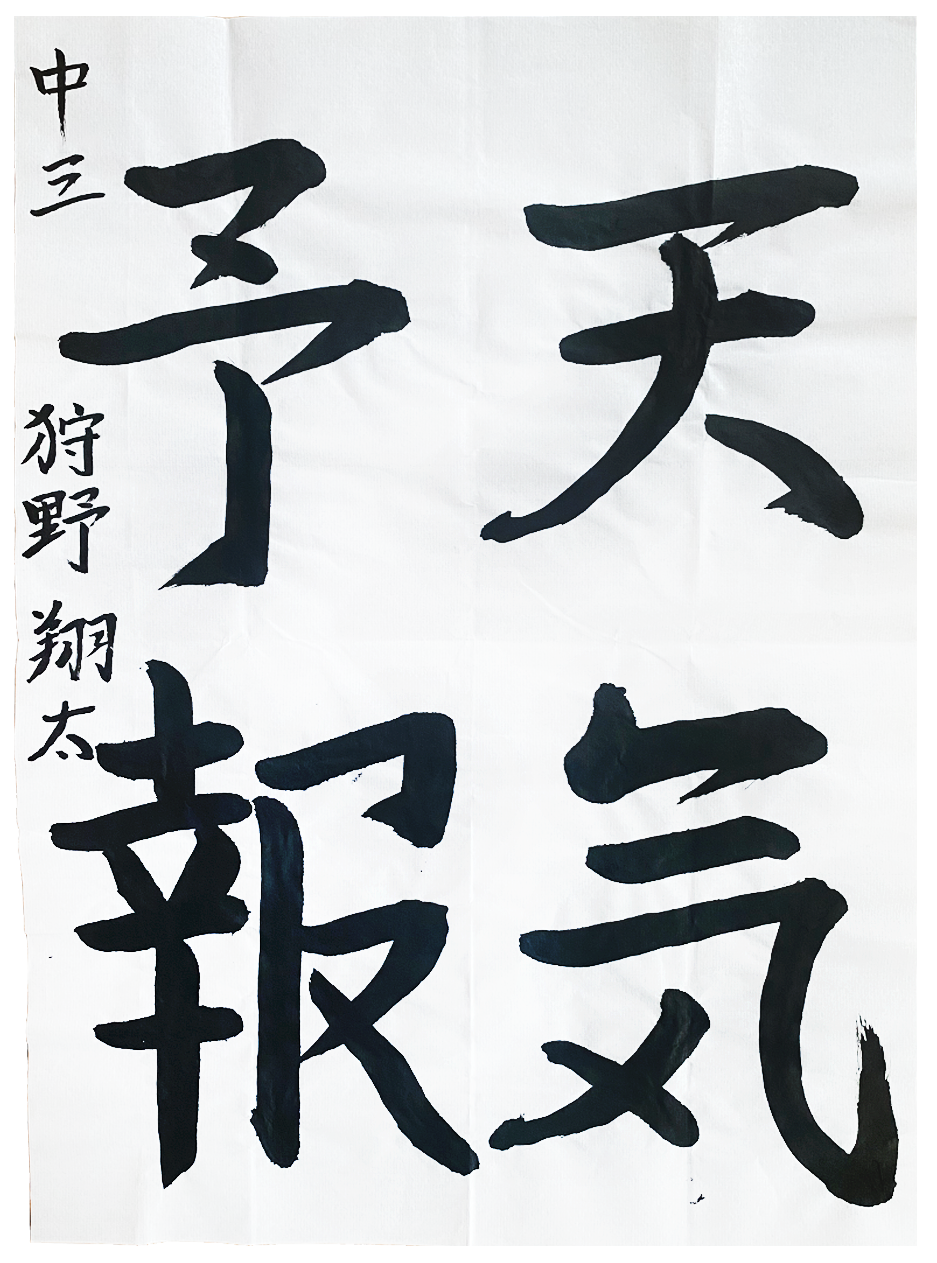 天気
予報
中三 狩野翔太